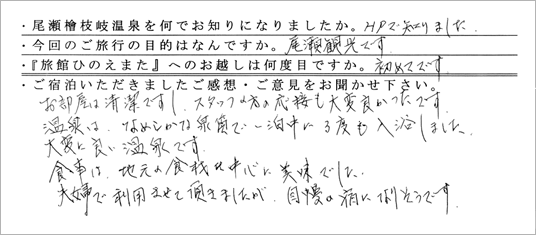 ・尾瀬檜枝岐温泉を何でお知りになりましたか。HPで知りました
・今回のご旅行の目的はなんですか。尾瀬観光です
・『旅館ひのえまた』へのお越しは何度目ですか。初めてです
・ご宿泊いただきましたご感想・ご意見をお聞かせ下さい。
お部屋は清潔ですし、スタッフの方の応接も大変良かったです。
温泉は、なめらかな泉質で一泊中に3度も入浴しました。
大変に良い温泉です。
食事は、地元の食材を中心に美味でした。
夫婦で利用させて頂きましたが、自慢の宿になりそうです。